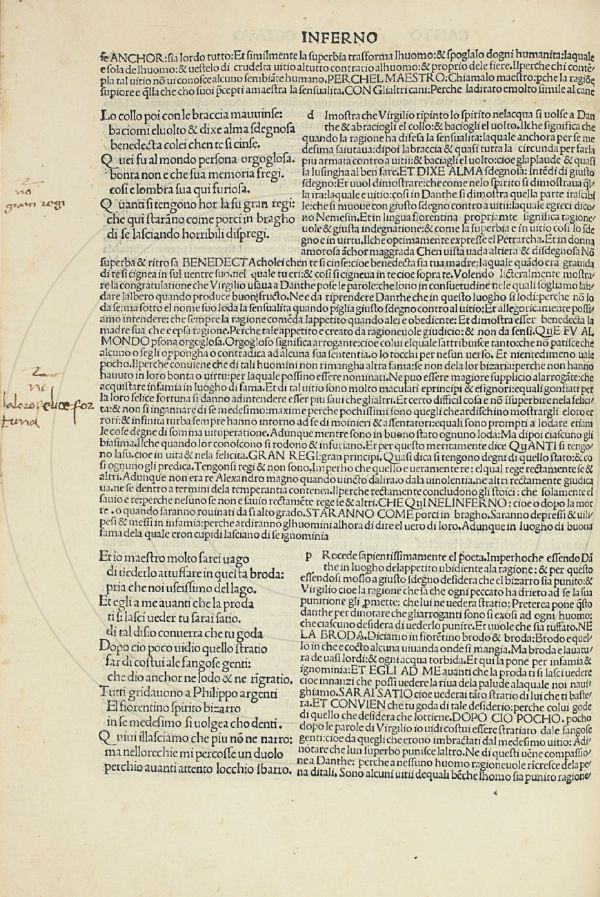 INFERNO
se ANCHOR: sia lordo tutto: Et similmente la superbia trasforma lhuomo: & spoglalo dogni humanita: laquale
e sola de lhuomo: & uestelo di crudelta uitio al tutto contrario alhuomo: & proprio delle fiere. Ilperche chi contē
pla tal uitio nō ui conosce alcuno sembiāte humano. PERCHEL MAESTRO: Chiamalo maestro: pche la ragiōe
supiore e q̄lla che suoi p̄cepti amaestra la sensualita. CON gli altri cani: Perche ladirato e molto simile al cane
Lo collo poi con le braccia mavuinse:
baciomi eluolto & dixe alma sdegnosa
benedecta colei chen te si cinse.
Quei fu al mondo persona orgoglosa.
bonta non e che sua memoria fregi.
cosi e lombra sua qui furiosa.
Quanti si tengono hor la su gran regi:
che qui starāno come porci in bragho
di se lasciando horribili dispregi.
d Imostra che Virgilio ripinto lo spirito nelacqua si uolse a Dan
the & abracciogli el collo: & baciogli el uolto. Ilche significa che
quando la ragione ha difesa la sensualita: laquale anchora per se me
desima saiutaua: dipoi labraccia & quasi tutta la circunda per farla
piu armata contro a uitii: & baciagli el uolto: cioe gla plaude & quasi
la lusingha al ben fare. ET DIXE ALMA sdegnosa: Intēdi di giusto
sdegno: Et uuol dimostrare: che come nelo spirito si dimostraua q̄l
la ira: laquale e uitio: cosi in Danthe si dimostra quella parte irascibi
le: che si muoue con giusto sdegno contro a uitii: laquale egreci dico
no Nemesin. Et in lingua fiorentina propriamte significa ragione
uole & giusta indegnatione: & come la superbia e uitio cosi lo sde
gno e in uirtu, Ilche optimamente expresse el Petrarcha. Et in donna
amorosa āchor maggrada Chen uista uada altiera & disdegnosa Nō
superba & ritrosa BENEDECTA cholei chen te si cinse: cioe benedecta sia tua madre: laquale quādo era grauida
di te si cignea in sul uentre suo. nel quale tu eri: & cosi si cigneua in te cioe sopra te. Volendo licteralmente mostra
re la congratulatione che Virgilio usaua a Danthe pose le parole: che sono in consuetudine nele quali sogliamo lau
dare lalbero quando produce buon fructo. Nee da riprendere Danthe che in questo luogho si lodi: perche nō lo
da se: ma sotto el nome suo loda la sensualita quando piglia giusto sdegno contro al uitio: Et allegoricamente possi
amo intendere: che sempre la ragione comēda lappetito quando alei e obediente: Et dimostra esser benedecta la
madre sua che e epsa ragione. Perche tale appetito e creato da ragioneuole giudicio: & non da sensi. QVE FV AL
MONDO psona orgoglosa. Orgogloso significa arrogante: cioe colui elquale sattribuisce tanto: che nō patisce che
alcuno o segli oppongha o contradica ad alcuna sua sententia. o lo tocchi per nesun uerso. Et nientedimeno uale
poco. Ilperche conuiene che di tali huomini non rimangha altra fama: se non dela lor bizarria: perche non hanno
hauuto in loro bonta o uirtu per laquale possino essere nominati. Ne puo essere magiore supplicio al arrogāte: che
acquistare infamia in luogho di fama. Et di tal uitio sono molto maculati eprincipi & esignori: equali gonfiati per
la loro felice fortuna si danno ad intendere esser piu saui che gli altri. Et certo difficil cosa e nō isuperbire nela felici
ta: & non si ingannare di se medesimo: maxime perche pochissimi sono quegli che ardischino mostrargli eloro er
rori: & infinita turba sempre hanno intorno ad se di moineri & assentatori: equali sono prompti a lodare etiam
le cose degne di somma uituperatione. Adunque mentre sono in buono stato ognuno loda: Ma dipoi ciascuno gli
biasima. Ilche quando lor conoscono si rodono & infuriano. Et per questo meritamente dice QVANTI si tengo
no la su. cioe in uita & nela felicita. GRAN REGI: gran principi. Quasi dica si tengono degni di quello stato: & co
si ognuno gli predica. Tengonsi regi & non sono. Imperho che quello e ueramente re: el qual rege rectamente se &
altri. Adunque non era re Alexandro magno quando uincto dalira. o dala uinolentia. ne altri rectamente giudica
ua. ne se dentro a termini dela temperantia contenea. Ilperche rectamente concludono gli stoici: che solamente el
sauio e re: perche nesuno se non e sauio rectamēte rege se & altri. CHE QVI NEL INFERNO: cioe o dopo la mor
te. o quando saranno rouinati da stato grado. STARANNO COME porci in bragho. Saranno depressi & uili
pesi & messi in infamia: perche ardiranno gli huomini alhora di dire el uero di loro. Adunque in luogho di buona
fama dela quale eron cupidi lasciano di se ignominia
Et io maestro molto sarei uago
di uederlo attuffare in questa broda:
pria che noi uscissimo del lago.
Et egli a me auanti che la proda
ti si lasci ueder tu sarai satio.
di tal disio conuerra che tu goda
Dopo cio poco uidio quello stratio
far di costui ale fangose genti:
che dio anchor ne lodo & ne rigratio.
Tutti gridauono a Philippo argenti
El fiorentino spirito bizarro
in se medesimo si uolgea cho denti.
Quiui illasciamo che piu nō ne narro:
ma nellorecchie mi percosse un duolo
perchio auanti attento locchio sbarro.
p Rocede sapientissimamente el poeta. Imperhoche essendo Dā
the in luogho delappetito ubidiente ala ragione: & per questo
essendosi mosso a giusto sdegno desidera che el bizarro sia punito: &
Virgilio cioe la ragione che sa che ogni peccato ha drieto ad se la sua
punitione gli pmette: che lui ne uedera stratio: Preterea pone q̄sto
danthe per dinotare che gli arroganti sono si exosi ad ogni huomo:
che ciascuno desidera di uederlo punito. Et uuole che sia tuffato. NE
LA BRODA. Diciamo in fiorētino brodo & broda: Brodo e quel
lo in che e cocto alcuna uiuanda onde si mangia. Ma broda e lauatu
ra de uasi lordi: & ogni acqua torbida. Et qui la pone per infamia &
ignominia: ET EGLI AD ME auanti che la proda ti si lasci uedere
cioe innanzi che possi uedere la riua dela palude alaquale noi naui
ghiamo. SARAI SATIO cioe uederai tāto stratio di lui che ti baste
ra. ET CONVIEN che tu goda di tale desiderio: perche colui gode
di quello che desidera che sortiene. DOPO CIO POCHO. pocho
dopo le parole di Virgilio io uidi costui essere stratiato dale fangose
genti: cioe da quegli che erono imbractati dal medesimo uitio: Adi
notare che lun superbo punisce laltro. Ne di questi uēne compassio
ne a Danthe: perche a nessuno huomo ragioneuole ricresce dela pe
na ditali, Sono alcuni uitii dequali bēche lhomo sia punito ragione
nō
gran regi
nō
la loro felice for
tuna